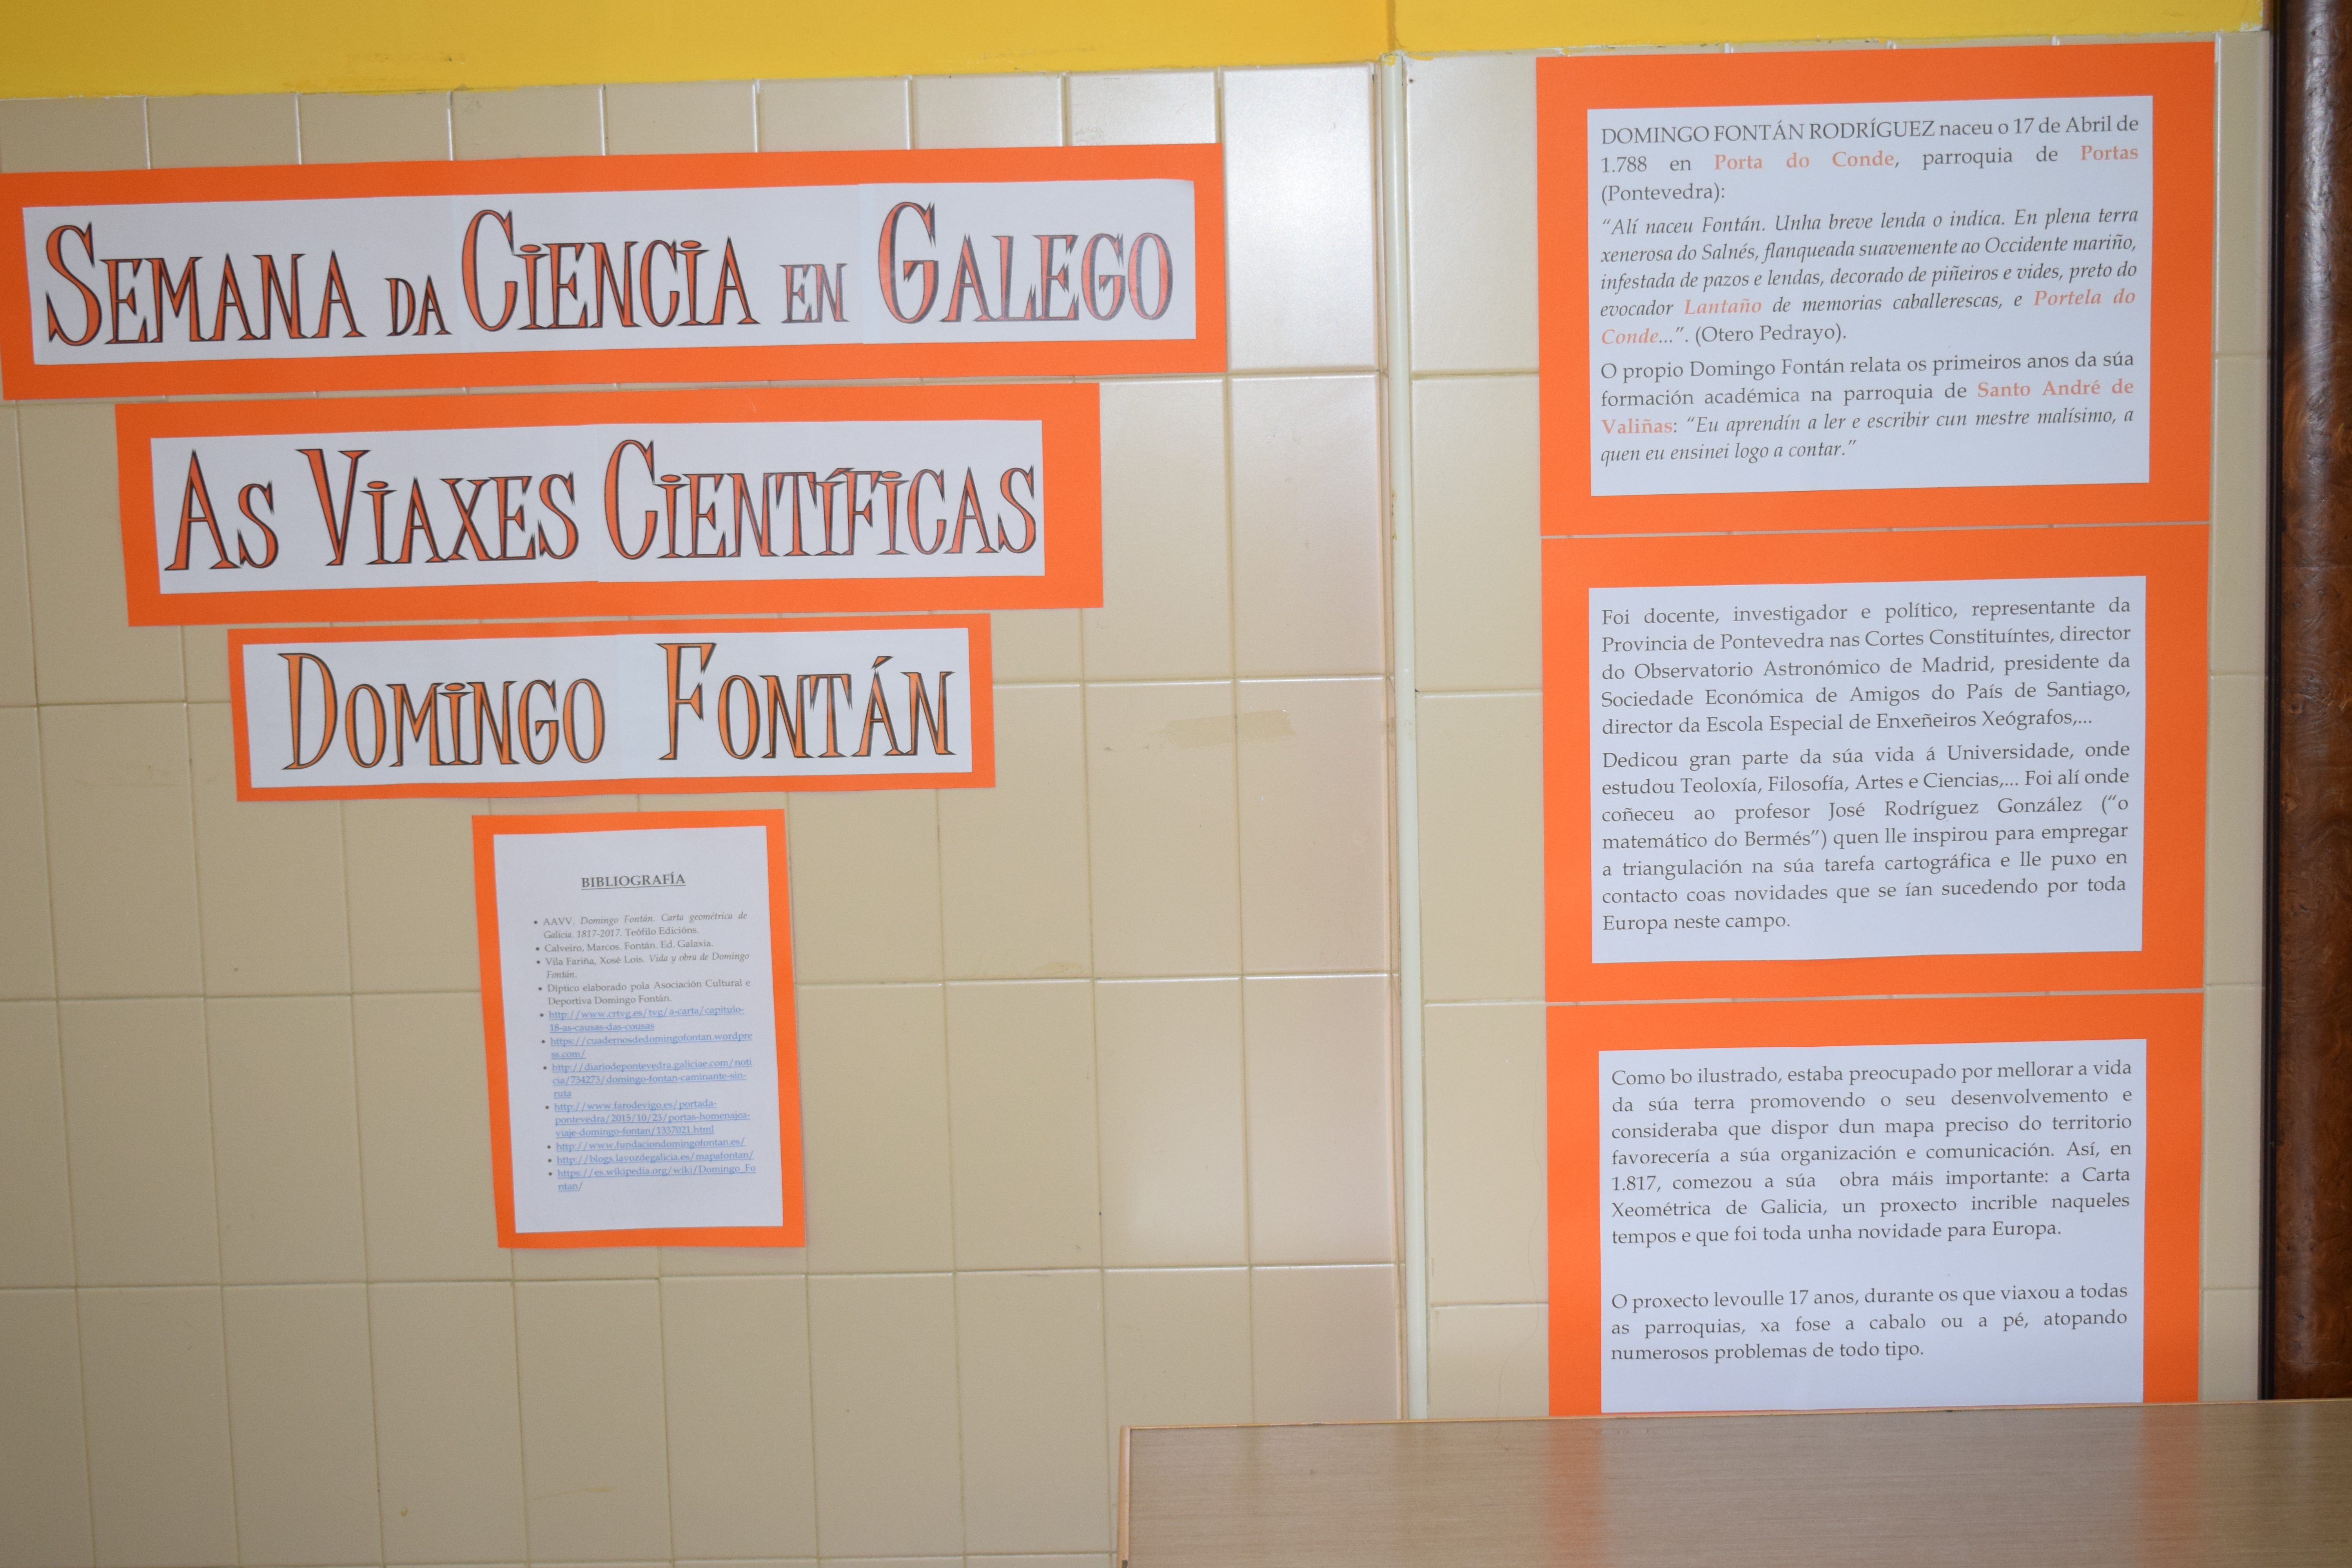 SEMANA DA CIENCIA EN GALEGO
AS VIAXES CIENTÍFICAS
DOMINGO FONTÁN
BIBLIOGRAFÍA
• AAVV. Domingo Fontán. Carta geométrica de
Galicia. 1817-2017. Teófilo Edicións.
• Calveiro, Marcos. Fontán. Ed. Galaxia.
• Vila Fariña, Xosé Lois. Vida y obra de Domingo
Fontán.
• Díptico elaborado pola Asociación Cultural e
Deportiva Domingo Fontán.
• http://www.crtvg.es/tvg/a-carta/capitulo-
18-as-causas-das-cousas
• https://cuadernosdedomingofontan.wordpre
ss.com/
• http://diariodepontevedra.galiciae.com/noti
cia/734273/domingo-fontan-caminante-sin-
ruta
• http://www.farodevigo.es/portada-
pontevedra/2015/10/23/portas-homenajea-
viaje-domingo-fontan/1337021.html
• http://www.fundaciondomingofontan.es/
• http://blogs.lavozdegalicia.es/mapafontan/
• https://es.wikipedia.org/wiki/Domingo_Fo
ntan/
DOMINGO FONTÁN RODRÍGUEZ naceu o 17 de Abril de
1.788 en Porta do Conde, parroquia de Portas
(Pontevedra):
“Alí naceu Fontán. Unha breve lenda o indica. En plena terra
xenerosa do Salnés, flanqueada suavemente ao Occidente mariño,
infestada de pazos e lendas, decorado de piñeiros e vides, preto do
evocador Lantaño de memorias caballerescas, e Portela do
Conde...”. (Otero Pedrayo).
O propio Domingo Fontán relata os primeiros anos da súa
formación académica na parroquia de Santo André de
Valiñas: “Eu aprendín a ler e escribir cun mestre malísimo, a
quen eu ensinei logo a contar.”
Foi docente, investigador e político, representante da
Provincia de Pontevedra nas Cortes Constituíntes, director
do Observatorio Astronómico de Madrid, presidente da
Sociedade Económica de Amigos do País de Santiago,
director da Escola Especial de Enxeñeiros Xeógrafos,...
Dedicou gran parte da súa vida á Universidade, onde
estudou Teoloxía, Filosofía, Artes e Ciencias,... Foi alí onde
coñeceu ao profesor José Rodríguez González (“o
matemático do Bermés”) quen lle inspirou para empregar
a triangulación na súa tarefa cartográfica e lle puxo en
contacto coas novidades que se ían sucedendo por toda
Europa neste campo.
Como bo ilustrado, estaba preocupado por mellorar a vida
da súa terra promovendo o seu desenvolvemento e
consideraba que dispor dun mapa preciso do territorio
favorecería a súa organización e comunicación. Así, en
1.817, comezou a súa obra máis importante: a Carta
Xeométrica de Galicia, un proxecto incrible naqueles
tempos e que foi toda unha novidade para Europa.
O proxecto levoulle 17 anos, durante os que viaxou a todas
as parroquias, xa fose a cabalo ou a pé, atopando
numerosos problemas de todo tipo.